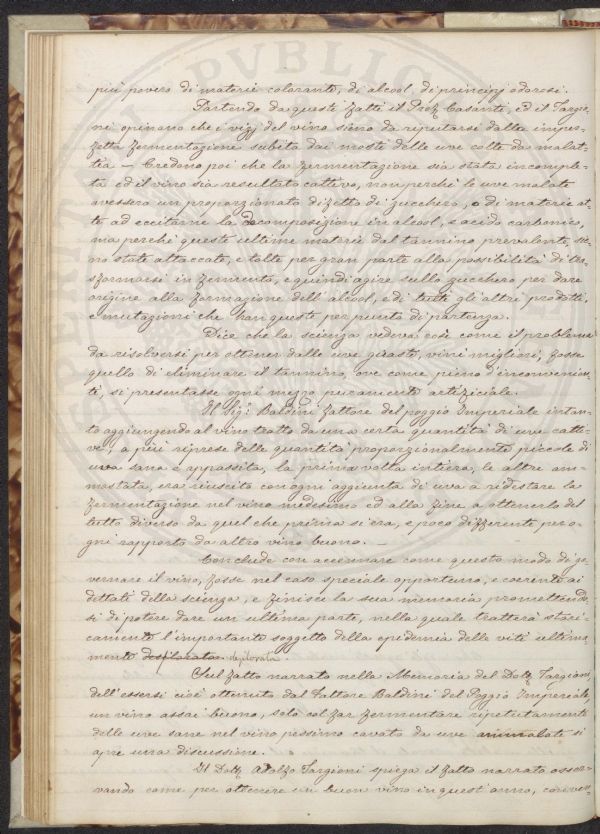 più povero di materie coloranti, di alcool, di principj odorosi.
Partendo da questi fatti il Prof. Casanti, ed il Targio-
ni opinano che i vizj del vino siano da reputarsi dalla imper-
fetta fermentazione subita dai mosti delle uve colte da malat-
tia — Credono poi che la fermentazione sia stata incomple-
ta ed il vino sia resultato cattivo, non perchè le uve malate
avessero un proporzionato difetto di zucchero, o di materie at-
te ad eccitarne la decomposizione in alcool, e acido carbonico,
ma perchè queste ultime materie dal tannino prevalente, sie-
no state attaccate, e tolte per gran parte alla possibilità di tra-
sformarsi in fermento, e quindi agire sullo zucchero per dare
origine alla formazione dell'alcool, e di tutti gli altri prodotti,
e mutazioni che han queste per punto di partenza.
Dice che la scienza vedeva così come il problema
da risolversi per ottener dalle uve guasti, vini migliori, fosse
quello di eliminare il tannino, ove come pieno d'inconvenien-
ti, si presentasse ogni mezzo puramente artificiale.
Il Sigr. Baldini fattore del poggio Imperiale intan-
to aggiungendo al vino tratto da una certa quantità di uve catti-
ve, a più riprese delle quantità proporzionalmente piccole di
uva sana e appassita, la prima volta intiera, le altre am-
mostata, era riuscito con ogni aggiunta di uva a ridestare la
fermentazione nel vino medesimo ed alla fine a ottenerlo del
tutto diverso da quel che prima si era, e poco differente per o-
gni rapporto da altro vino buono. —
Conclude con accennare come questo modo di go-
vernare il vino, fosse nel caso speciale opportuno, e coerente ai
dettati della scienza, e finisce la sua memoria promettendo-
si di potere dare un'ultima parte, nella quale tratterà stori-
camente l'importante soggetto della epidemia delle viti ultima-
mente desplorata. deplorata
Sul fatto narrato nella Memoria del Dott. Targioni
dell'essersi cioè ottenuto dal Fattore Baldini del Poggio Imperiale,
un vino assai buono, solo col far fermentare ripetutamente
delle uve sane nel vino pessimo cavato da uve ammalate si
apre una discussione.
Il Dott. Adolfo Targioni spiega il fatto narrato osser-
vando come per ottenere un buon vino in quest'anno,